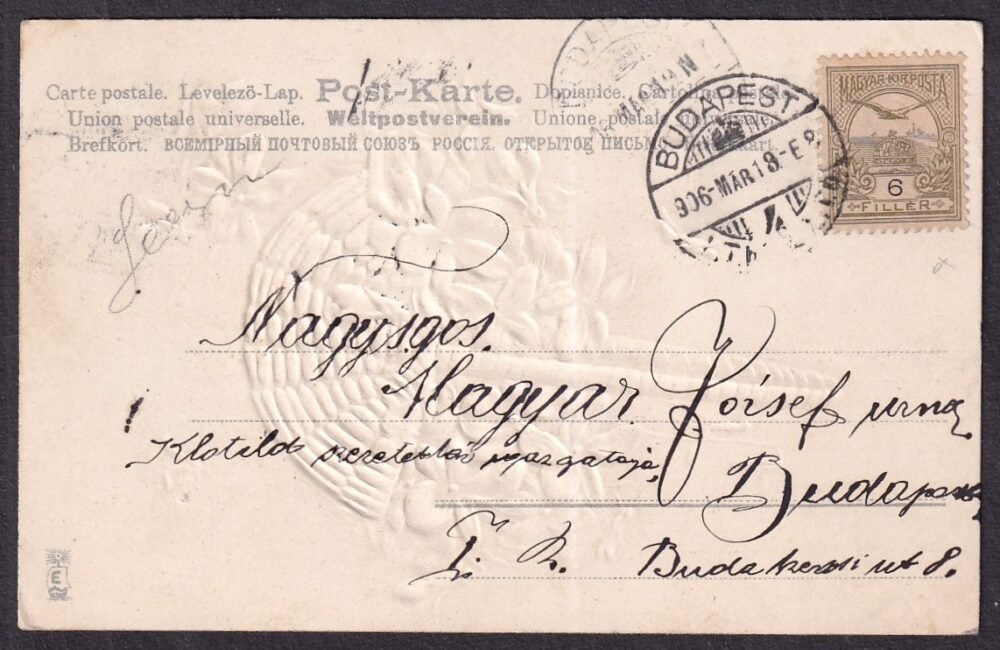 Carte postale. Levelező-Lap. Post-Karte. Dopisnice. Cartolina
Union postale universelle. Weltpostverein. Unione postale
Brefkort. ВСЕМІРНЫЙ ПОЧТОВЫЙ СОЮЗЪ РОССІЯ. ОТКРЫТОЕ ПИСЬМО
MAGYAR KIR. POSTA
6
FILLÉR
BUDAPEST
906-MÁR 18-E 8
Nagysgos.
Magyar József urna
Klotild
Budapest
I. k. Budakeszi ut 8.
E